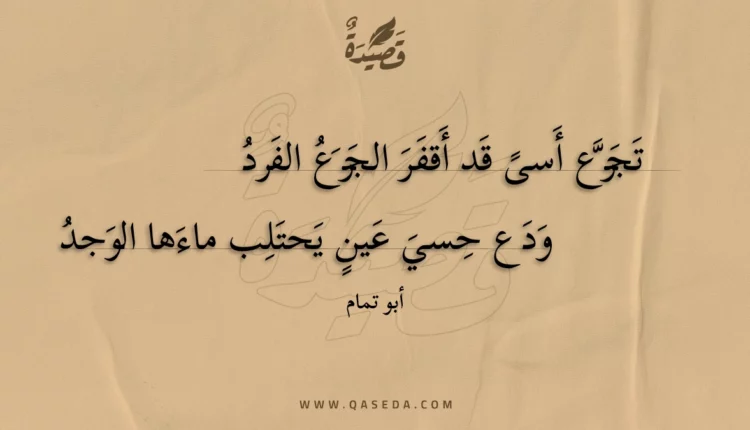 قَصِيدَةٌ
تَجَرَّع أَسىً قَد أَقفَرَ الجَرَعُ الفَردُ
وَدَع حِسيَ عَينٍ يَحتَلِب ماءَها الوَجدُ
أبو تمام
WWW.QASEDA.COM